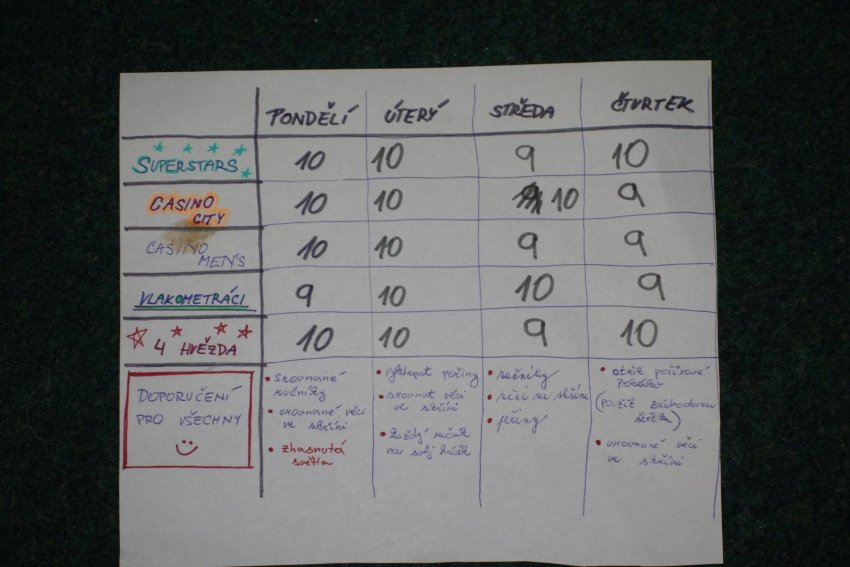 PONDĚLÍ ÚTERÝ STŘEDA ČTVRTEK
SUPERSTARS 10 10 9 10
CASINO CITY 10 10 10 9
CASINO MEN'S 10 10 9 9
VLAKOMETRÁCI 9 10 10 9
4 HVĚZDA 10 10 9 10
DOPORUČENÍ
PRO VŠECHNY
• srovnané
ručníky
• srovnané věci
ve skříni
• zhasnutá
světla
• vyklepat peřiny
• srovnat věci
ve skříni
• každý ručník
na svůj háček
• ručníky
• věci ve skříni
• peřiny
• otřít
(použít záchodovou
štětku)
• srovnané věci
ve skříni